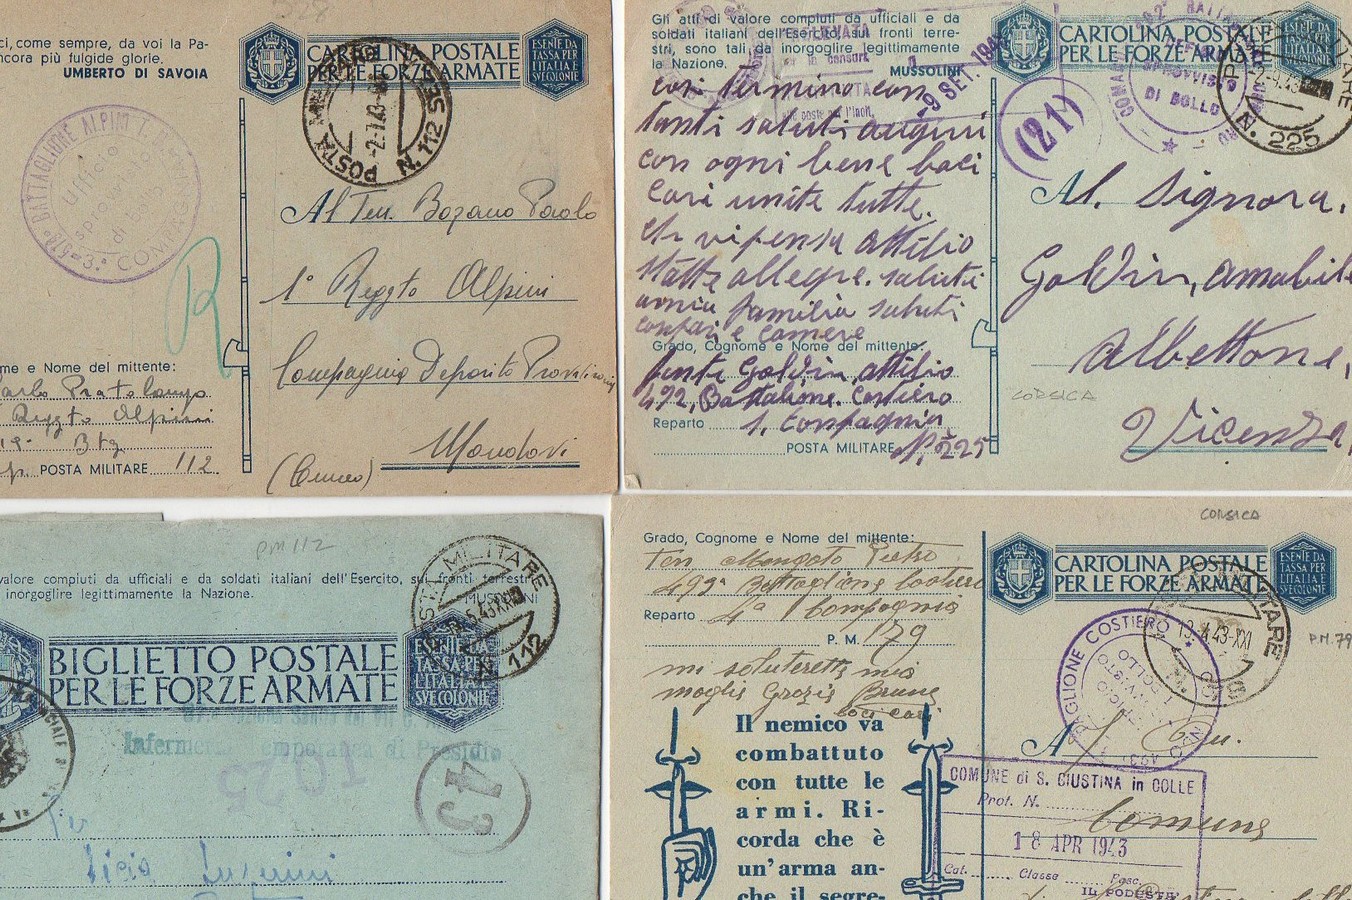 ci, come sempre, da voi la Pa-
ncora più fulgide glorie.
UMBERTO DI SAVOIA
CARTOLINA POSTALE
PER LE FORZE ARMATE
ESENTE DA
TASSA PER
L'ITALIA E
SVE COLONIE
POSTA MILITARE
-2.1.43
N. 112
BATTAGLIONE ALPINI
Ufficio
sprovvisto
di bollo
3ª COMPAGNIA
R
Al Ten. Bozano Paolo
1° Reggto Alpini
Compagnia Deposito
Mondovì
(Cuneo)
me e Nome del mittente:
Reggto Alpini
Btg
POSTA MILITARE 112
Gli atti di valore compiuti da ufficiali e da
soldati italiani dell'Esercito, sui fronti terre-
stri, sono tali da inorgoglire legittimamente
la Nazione.
MUSSOLINI
CARTOLINA POSTALE
PER LE FORZE ARMATE
ESENTE DA
TASSA PER
L'ITALIA E
SVE COLONIE
-9 SET. 194
(21)
DI BOLLO
-2.9.43
N. 225
così termino con
tanti saluti auguri
con ogni bene baci
cari unite tutte.
vi pensa attilio
state allegre. saluti
famiglia saluti
compari e comere
Grado, Cognome e Nome del mittente:
fante Goldin attilio
492, Battalione Costiero
Reparto 1, Compagnia
POSTA MILITARE N. 225
Al. Signora,
Goldin, amabile
Albettone,
CORSICA
Vicenza,
PM 112
valore compiuti da ufficiali e da soldati italiani dell'Esercito, sui fronti terrestri
inorgoglire legittimamente la Nazione.
MUSSOLINI
BIGLIETTO POSTALE
PER LE FORZE ARMATE
ESENTE DA
TASSA PER
L'ITALIA E
SVE COLONIE
POSTA MILITARE
N. 112
Infermeria Temporanea di Presidio
43
CORSICA
Grado, Cognome e Nome del mittente:
Ten Mangoto Pietro
493ª Battaglione Costiero
Reparto 4ª Compagnia
P. M. 179
mi saluterete mia
moglie Grazia Bruna
baci cari
Il nemico va
combattuto
con tutte le
armi. Ri-
corda che è
un'arma an-
che il segre-
CARTOLINA POSTALE
PER LE FORZE ARMATE
ESENTE DA
TASSA PER
L'ITALIA E
SVE COLONIE
P.M. 79
BATTAGLIONE COSTIERO
43-XXI
Al
COMUNE di S. GIUSTINA in COLLE
Prot. N.
18 APR 1943
Cat. Classe Fasc.
IL PODESTA'
Comune